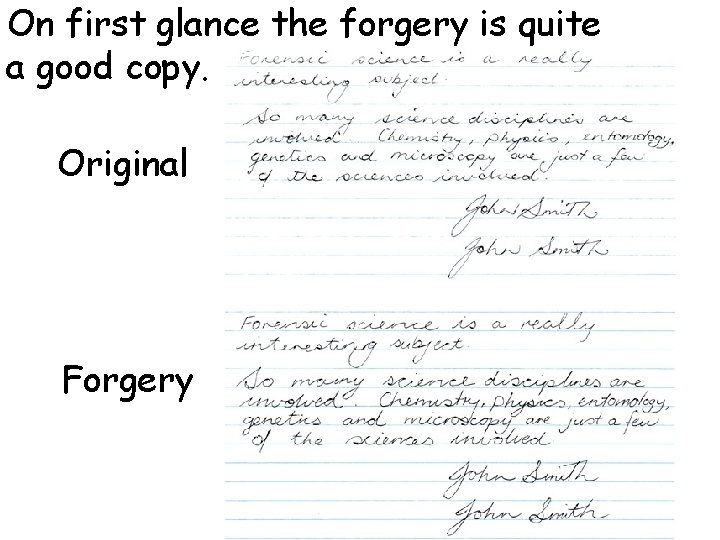 On first glance the forgery is quite
a good copy.
Original
Forensic science is a really
interesting subject.
So many science disciplines are
involved. Chemistry, physics, entomology,
genetics and microscopy are just a few
of the sciences involved.
John Smith
John Smith
Forgery
Forensic science is a really
interesting subject.
So many science disciplines are
involved. Chemistry, physics, entomology,
genetics and microscopy are just a few
of the sciences involved.
John Smith
John Smith